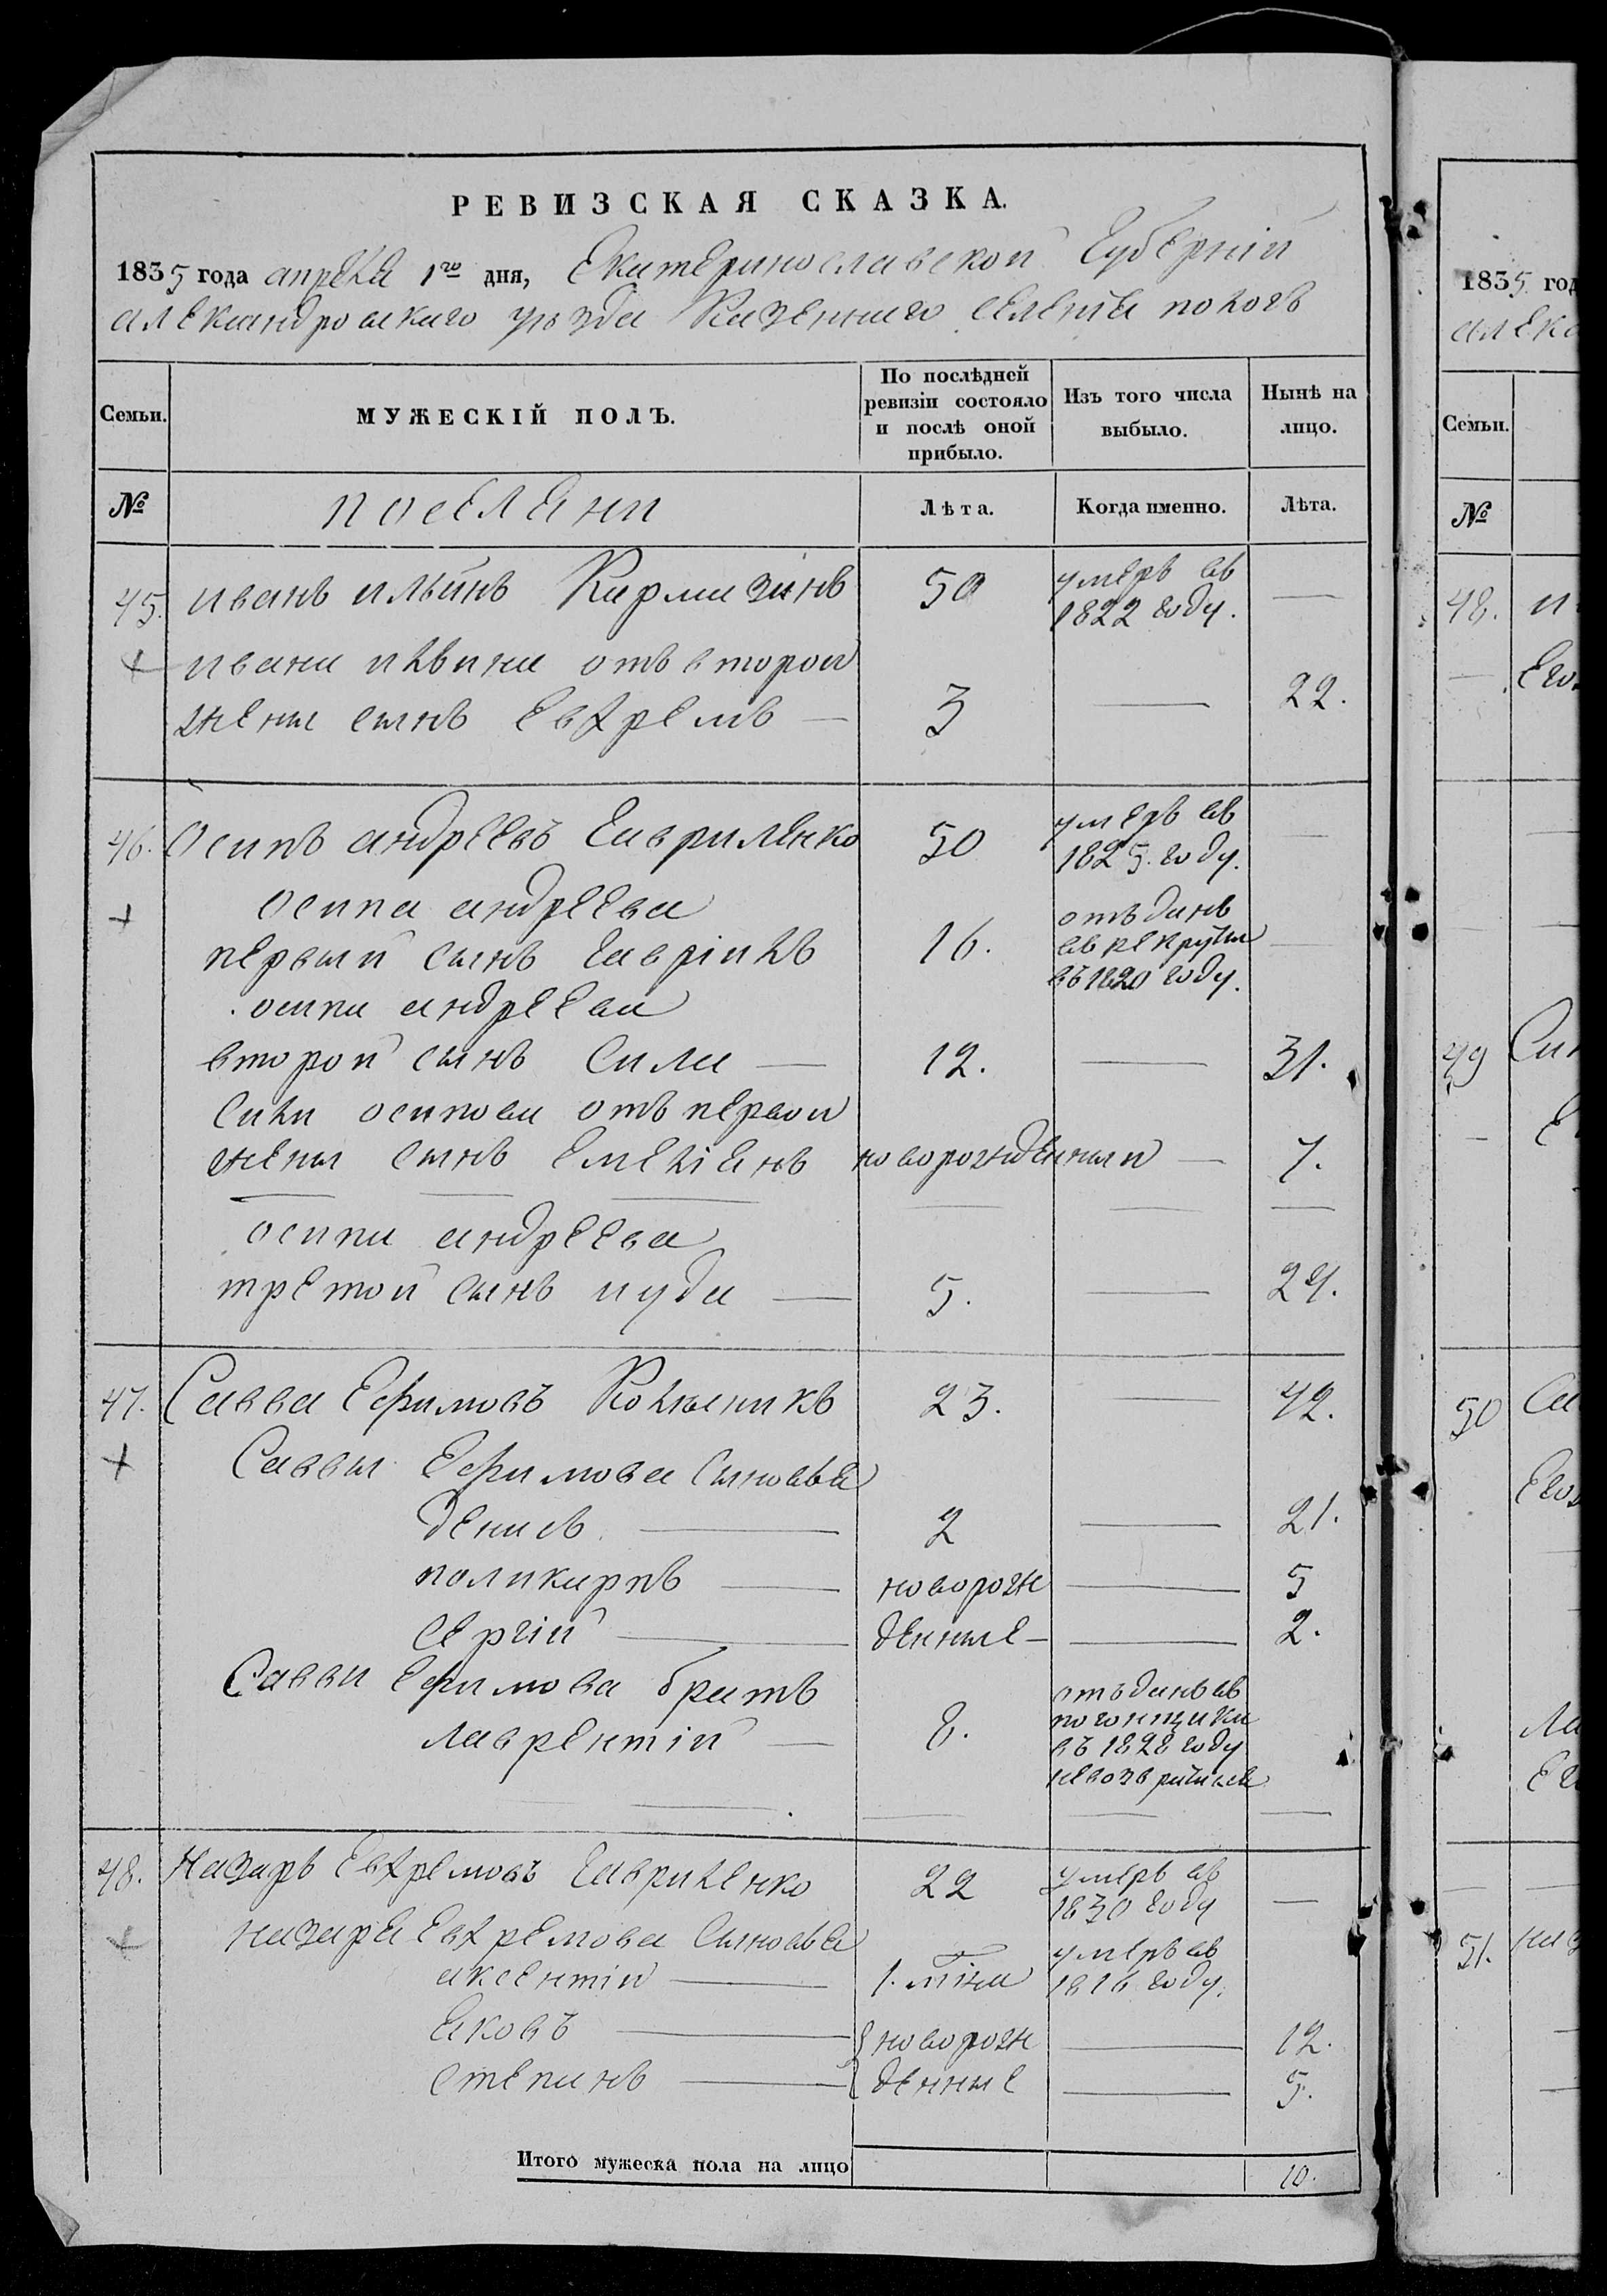 РЕВИЗСКАЯ СКАЗКА.
1835 года апреля 1го дня, Екатеринославской Губернiи
александровскаго уѣзда Казеннаго селенія пологъ
Семьи. МУЖЕСКІЙ ПОЛЪ. По послѣдней ревизіи состояло и послѣ оной прибыло. Изъ того числа выбыло. Нынѣ на лицо.
№ поселяни Лѣта. Когда именно. Лѣта.
45. иванъ ильинъ Кармазiнъ 50 умеръ въ 1822 году. —
+ ивана ильина отъ второй
жены сынъ Евхремъ — 3 — 22.
46. Осипъ андреевъ Гавриленко 50 умеръ въ 1825. году. —
+ осипа андреева
первый сынъ Гаврiилъ 16. отъданъ въ рекруты въ 1820 году. —
осипа андреева
второй сынъ Сила — 12. — 31.
Силы осипова отъ первой
жены сынъ Емелiянъ новорожденный — 7.
осипа андреева
третой сынъ иуда — 5. — 24.
47. Савва Ефимовъ Кольчикъ 23. — 42.
+ Саввы Ефимова Сыновья
денисъ. — 2 — 21.
поликарпъ — новорож — 5
Сергiй — денные — — 2.
Саввы Ефимова братъ
лаврентiй — 8. отъданъ въ погонщики въ 1828 году невозвратился
48. Назаръ Евхремовъ Гавриленко 22 умеръ въ 1830 году —
+ назаря Евхремова Сыновья
аксентiй — 1. умеръ въ 1816 году.
Яковъ — новорож — 12.
степанъ — денные — 5.
Итого мужеска пола на лицо 10.
1835 год
алекс
Семьи.
№
48. и
Его
49 Си
50 Са
Его
Ла
Ег
51. наз